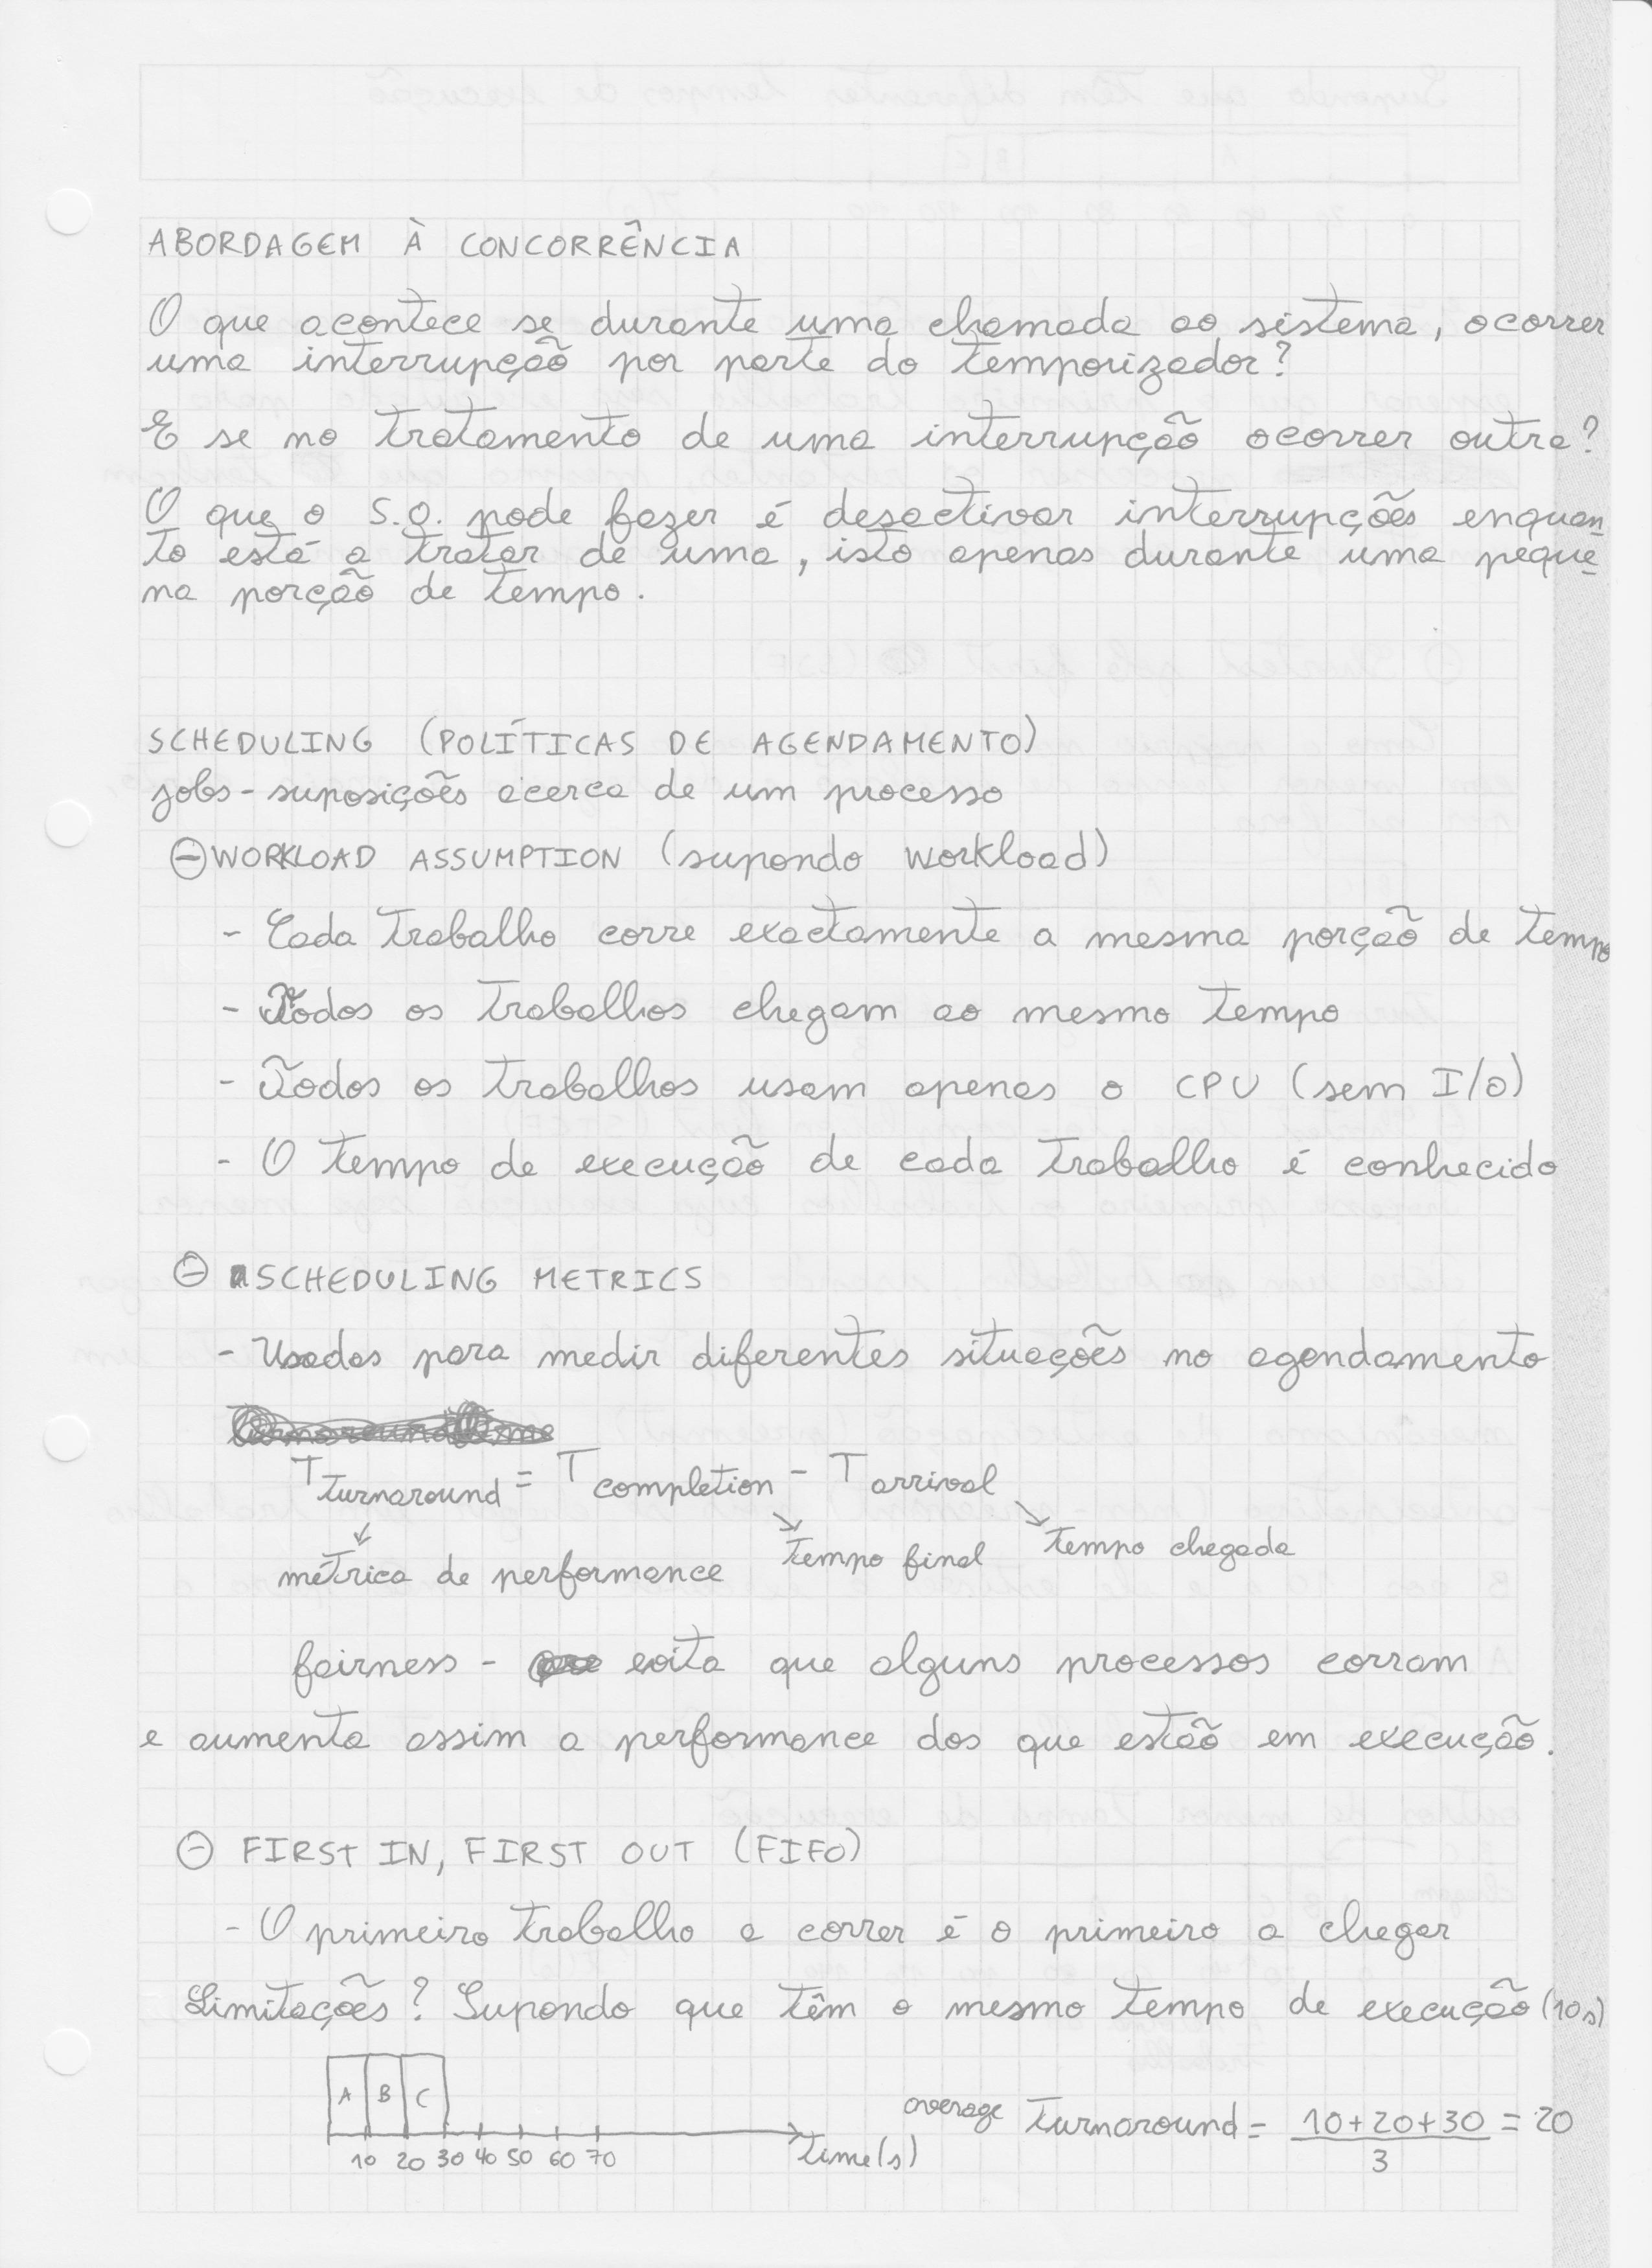 ABORDAGEM À CONCORRÊNCIA
O que acontece se durante uma chamada ao sistema, ocorrer
uma interrupção por parte do temporizador?
E se no tratamento de uma interrupção ocorrer outra?
O que o S.O. pode fazer é desactivar interrupções enquan
to está a tratar de uma, isto apenas durante uma peque
na porção de tempo.
SCHEDULING (POLÍTICAS DE AGENDAMENTO)
jobs - suposições acerca de um processo
⊖ WORKLOAD ASSUMPTION (supondo workload)
- Cada trabalho corre exactamente a mesma porção de tempo
- Todos os trabalhos chegam ao mesmo tempo
- Todos os trabalhos usam apenas o CPU (sem I/O)
- O tempo de execução de cada trabalho é conhecido
⊖ SCHEDULING METRICS
- Usadas para medir diferentes situações no agendamento
T turnaround = T completion - T arrival
métrica de performance tempo final tempo chegada
fairness - evita que alguns processos corram
e aumenta assim a performance dos que estão em execução.
⊖ FIRST IN, FIRST OUT (FIFO)
- O primeiro trabalho a correr é o primeiro a chegar
Limitações? Supondo que têm o mesmo tempo de execução (10s)
A B C
average turnaround = (10+20+30)/3 = 20
10 20 30 40 50 60 70 time(s)